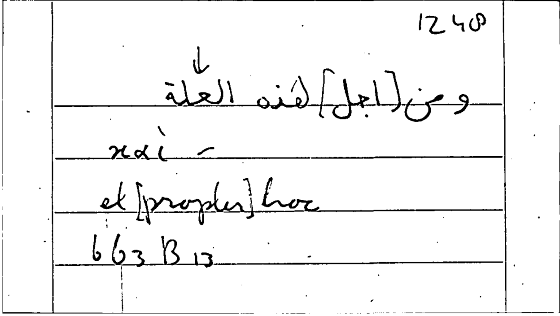 1248
↓
ومن [اجل] هذه العلة
και –
et [propter] hoc
663 B 13